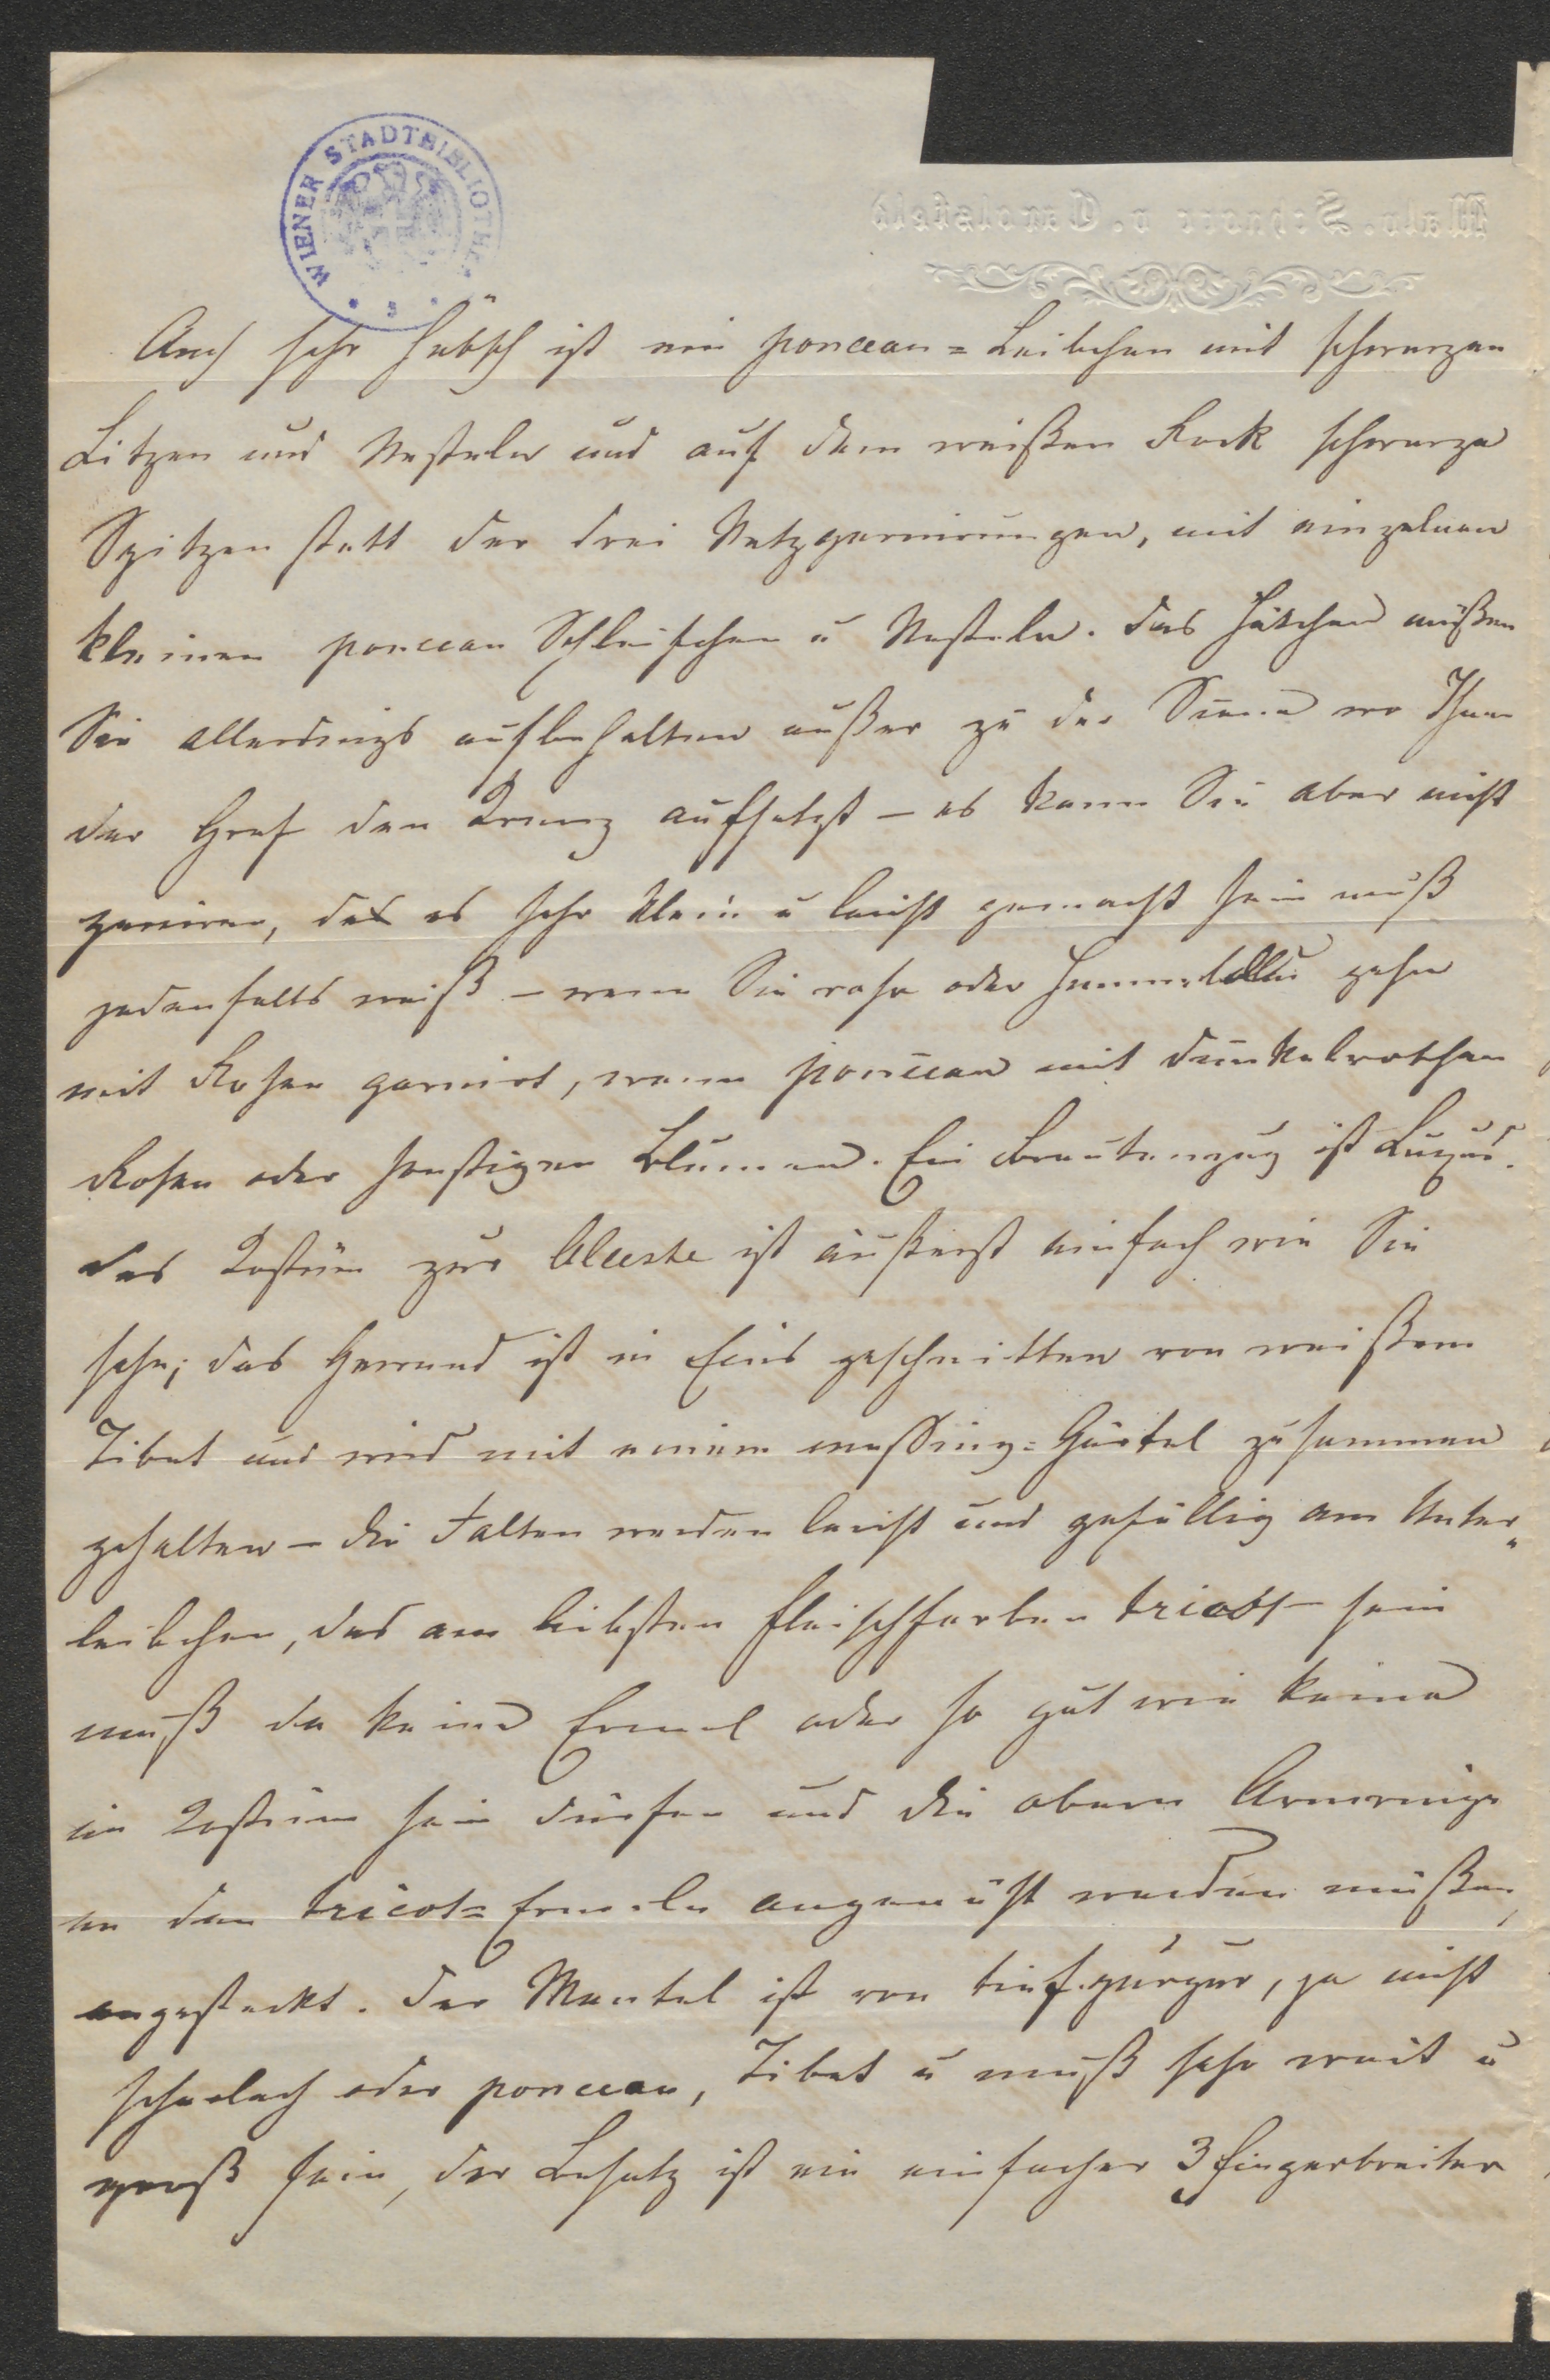 WIENER STADTBIBLIOTHEK
Malv. Schnorr v. Carolsfeld
Auch sehr hübsch ist ein ponceau=Leibchen mit schwarzen
Litzen und Nesteln und auf dem weißen Rock schwarze
Spitzen statt der drei Netzgarnirungen, mit einzelnen
kleinen ponceau Schleifchen u Nesteln. Das Hütchen müßen
Sie allerdings aufbehalten außer zu der Scene wo Ihnen
der Graf den Kranz aufsetzt – es kann Sie aber nicht
geniren, da es sehr klein u leicht gemacht sein muß
jedenfalls weiß – wenn Sie rosa oder himmelblau gehn
mit Rosen garnirt, wenn ponceau mit dunkelrothen
Rosen oder sonstigen Blumen. Ein Brautanzug ist Luxus.
Das Kostüm zur Alceste ist äußerst einfach wie Sie
sehn; das Gewand ist in Eins geschnitten von weißem
Tibet und wird mit einem messing=Gürtel zusammen
gehalten – die Falten werden leicht und gefällig am Unter„
leibchen, das am liebsten fleischfarben tricot sein
muß da keine Ermel oder so gut wie keine
im Kostüm sein dürfen und die obern Armringe
an den tricot=Ermeln angenäht werden müßen,
angesteckt. Der Mantel ist von tiefpurpur, ja nicht
scharlach oder ponceau, Tibet u muß sehr weit u
groß sein, der Besatz ist ein einfacher 3 fingerbreiter